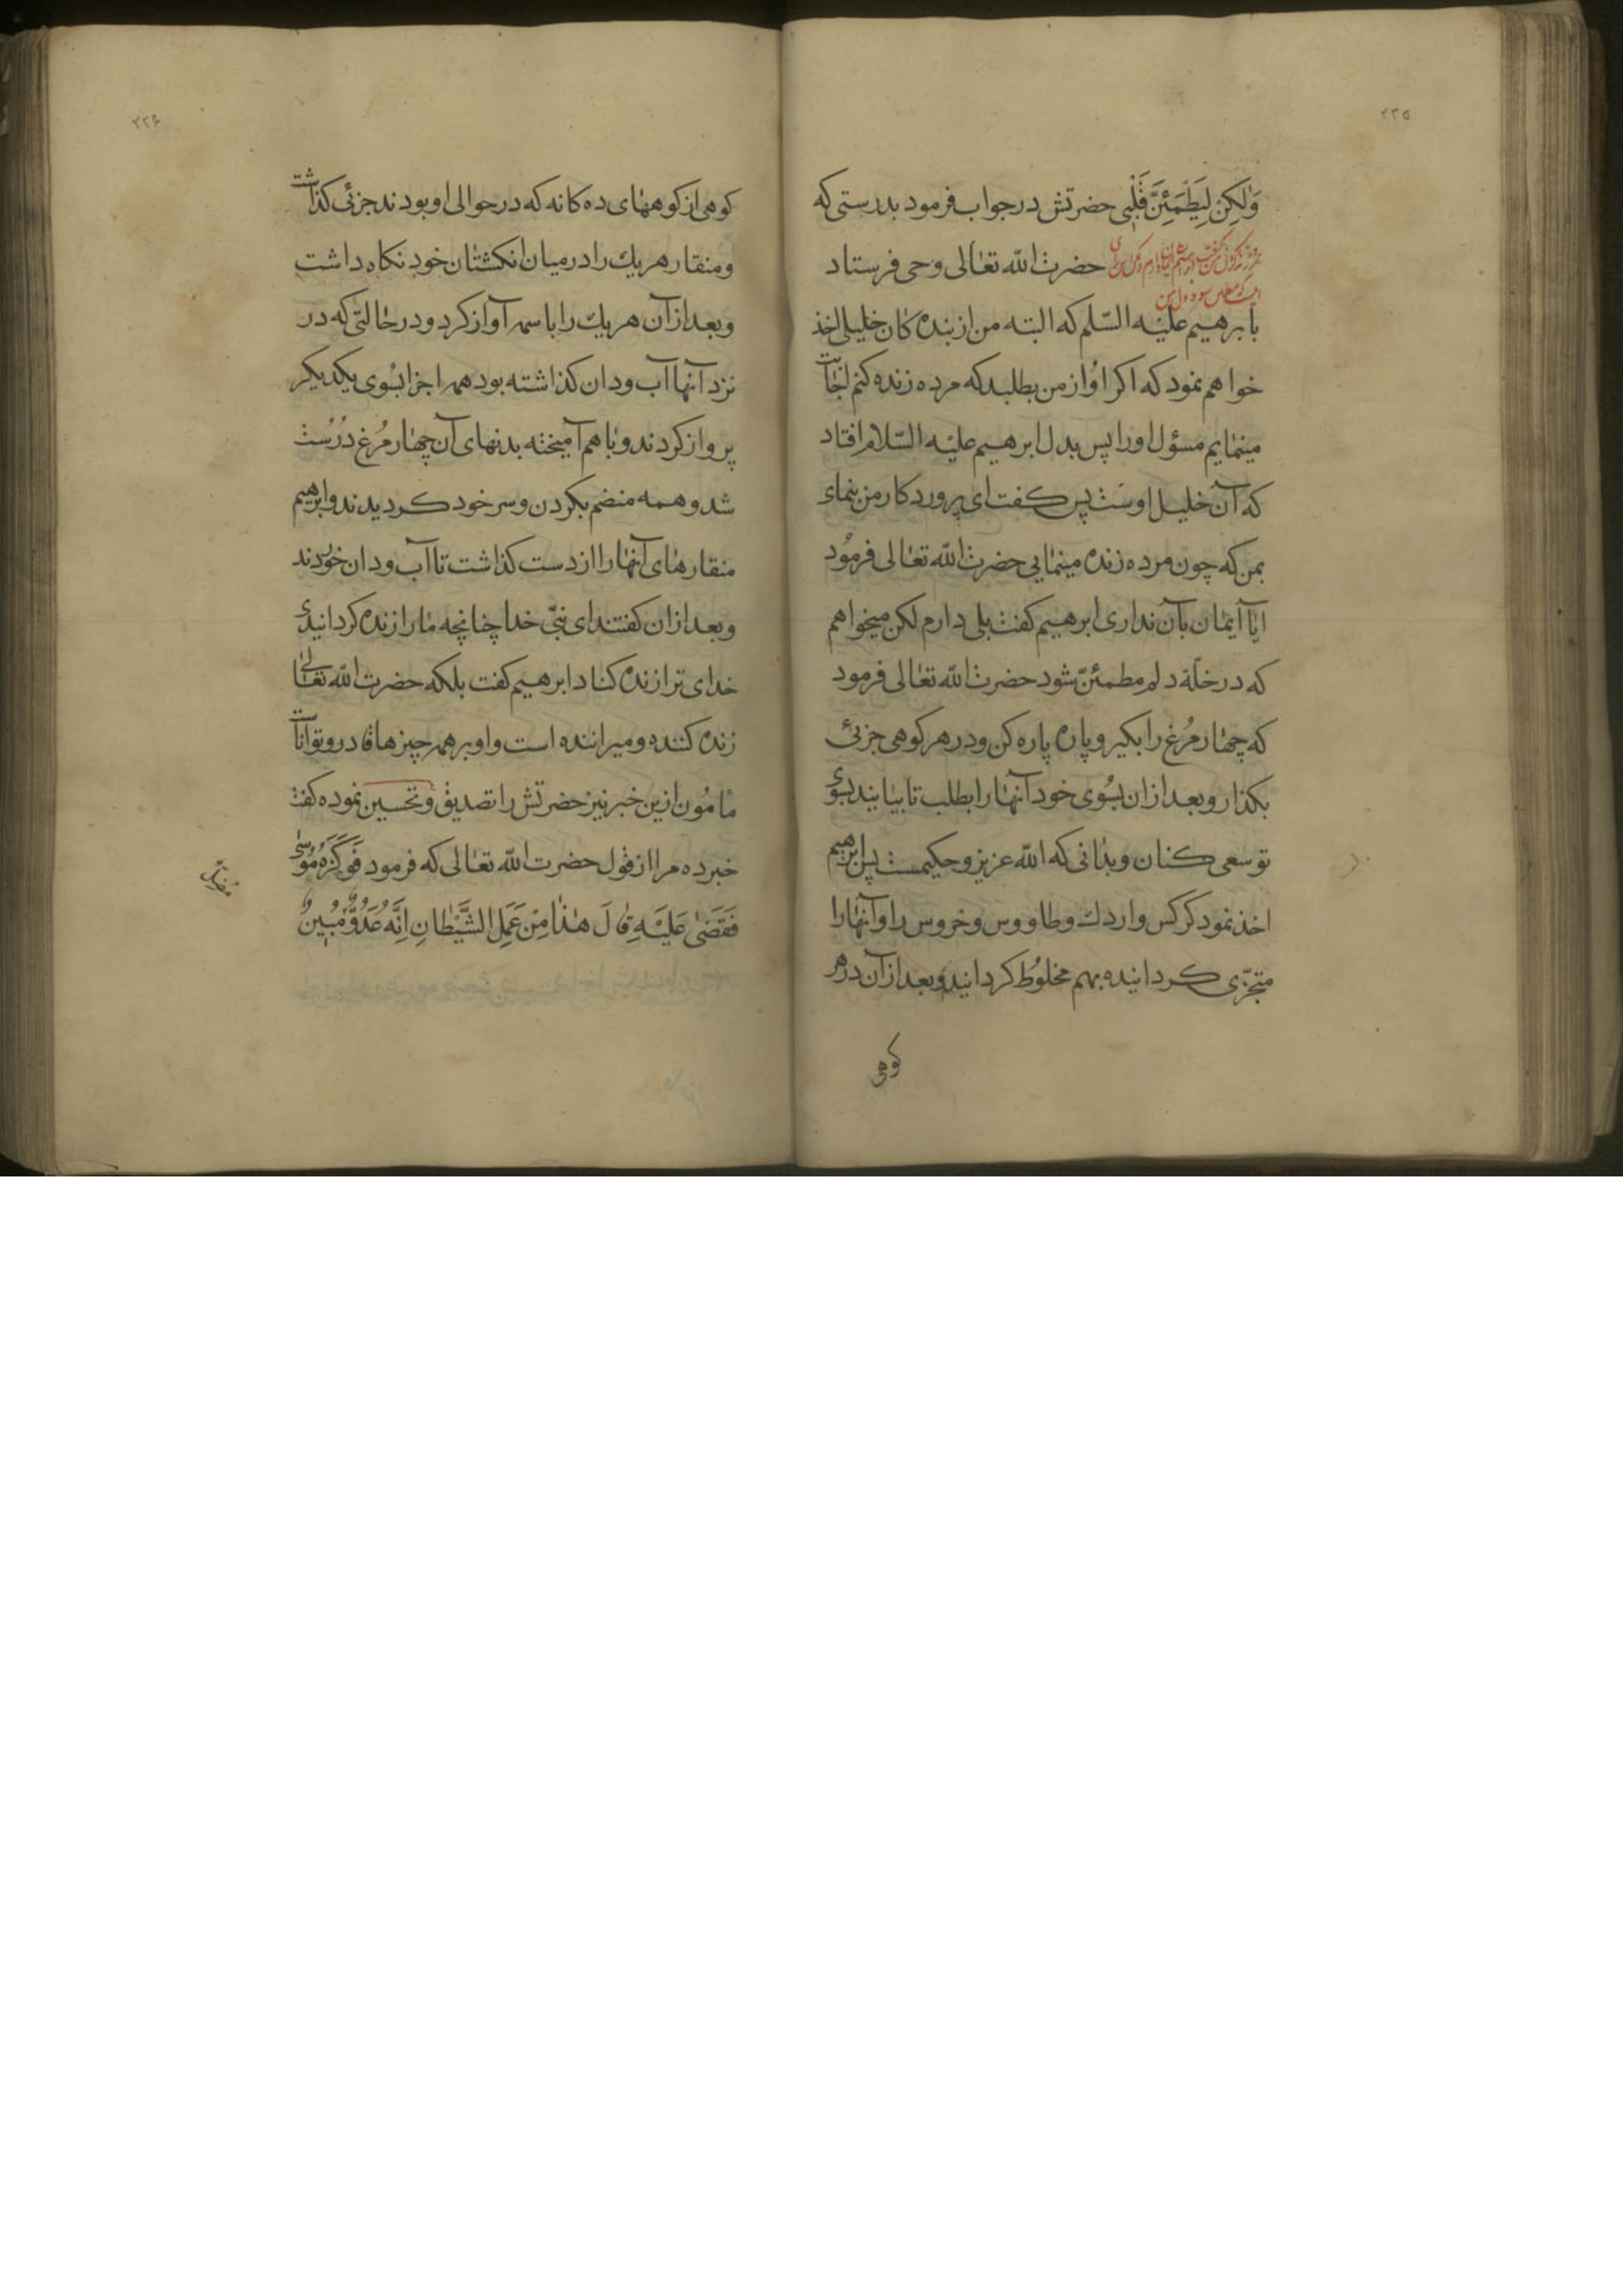 ۲۲۵
وَلٰكِن لِيَطْمَئِنَّ قَلْبِي حضرتش در جواب فرمود بدرستی که
حضرت الله تعالی وحی فرستاد
بابرهیم علیه السّلم که البته من از بنده کان خلیلی اخذ
خواهم نمود که اکر او از من بطلبد که مرده زنده کنم اجابت
مینمایم مسؤل او را پس بدل ابرهیم علیه السّلام افتاد
که آن خلیل اوست پس کفت ای پروردکار من بنمای
بمن که چون مرده زنده مینمایی حضرت الله تعالی فرمود
ایا آیمان بآن نداری ابرهیم کفت بلی دارم لکن میخواهم
که در خلّة دلم مطمئنّ شود حضرت الله تعالی فرمود
که چهار مرغ را بکیر و پاره پاره کن و در هر کوهی جزئی
بکذار و بعد از ان بسوی خود آنها را بطلب تا بیایند بسوی
تو سعی کنان و بدانی که الله عزیز و حکیمست پس ابرهیم
اخذ نمود کرکس و اردك و طاووس و خروس را و آنها را
متجزّی کردانیده بهم مخلوط کردانید و بعد از آن در هر
کوهی
۲۲۶
کوهی از کوههای ده کانه که در حوالی او بودند جزئی کذاشت
و منقار هر یك را در میان انکشتان خود نکاه داشت
و بعد از آن هر یك را باسمه آواز کرد و در حالتی که در
نزد آنها آب و دان کذاشته بود همه اجزا بسوی یکدیکر
پرواز کردند و با هم آمیخته بدنهای آن چهار مرغ درست
شد و همه منضم بکردن و سر خود کردیدند و ابرهیم
منقارهای آنها را از دست کذاشت تا آب و دان خوردند
و بعد از ان کفتند ای نبیّ خدا چنانچه ما را زنده کردانیدی
خدای ترا زنده کناد ابرهیم کفت بلکه حضرت الله تعالی
زنده کننده و میراننده است و او بر همه چیزها قادر و تواناست
مامون ازین خبر نیز حضرتش را تصدیق و تحسین نموده کفت
خبر ده مرا از قول حضرت الله تعالی که فرمود فَوَكَزَهُ مُوسٰى
فَقَضٰى عَلَيْهِ قَالَ هٰذَا مِنْ عَمَلِ الشَّيْطَانِ اِنَّهُ عَدُوٌّ مُبِينٌ
مُضِلٌّ